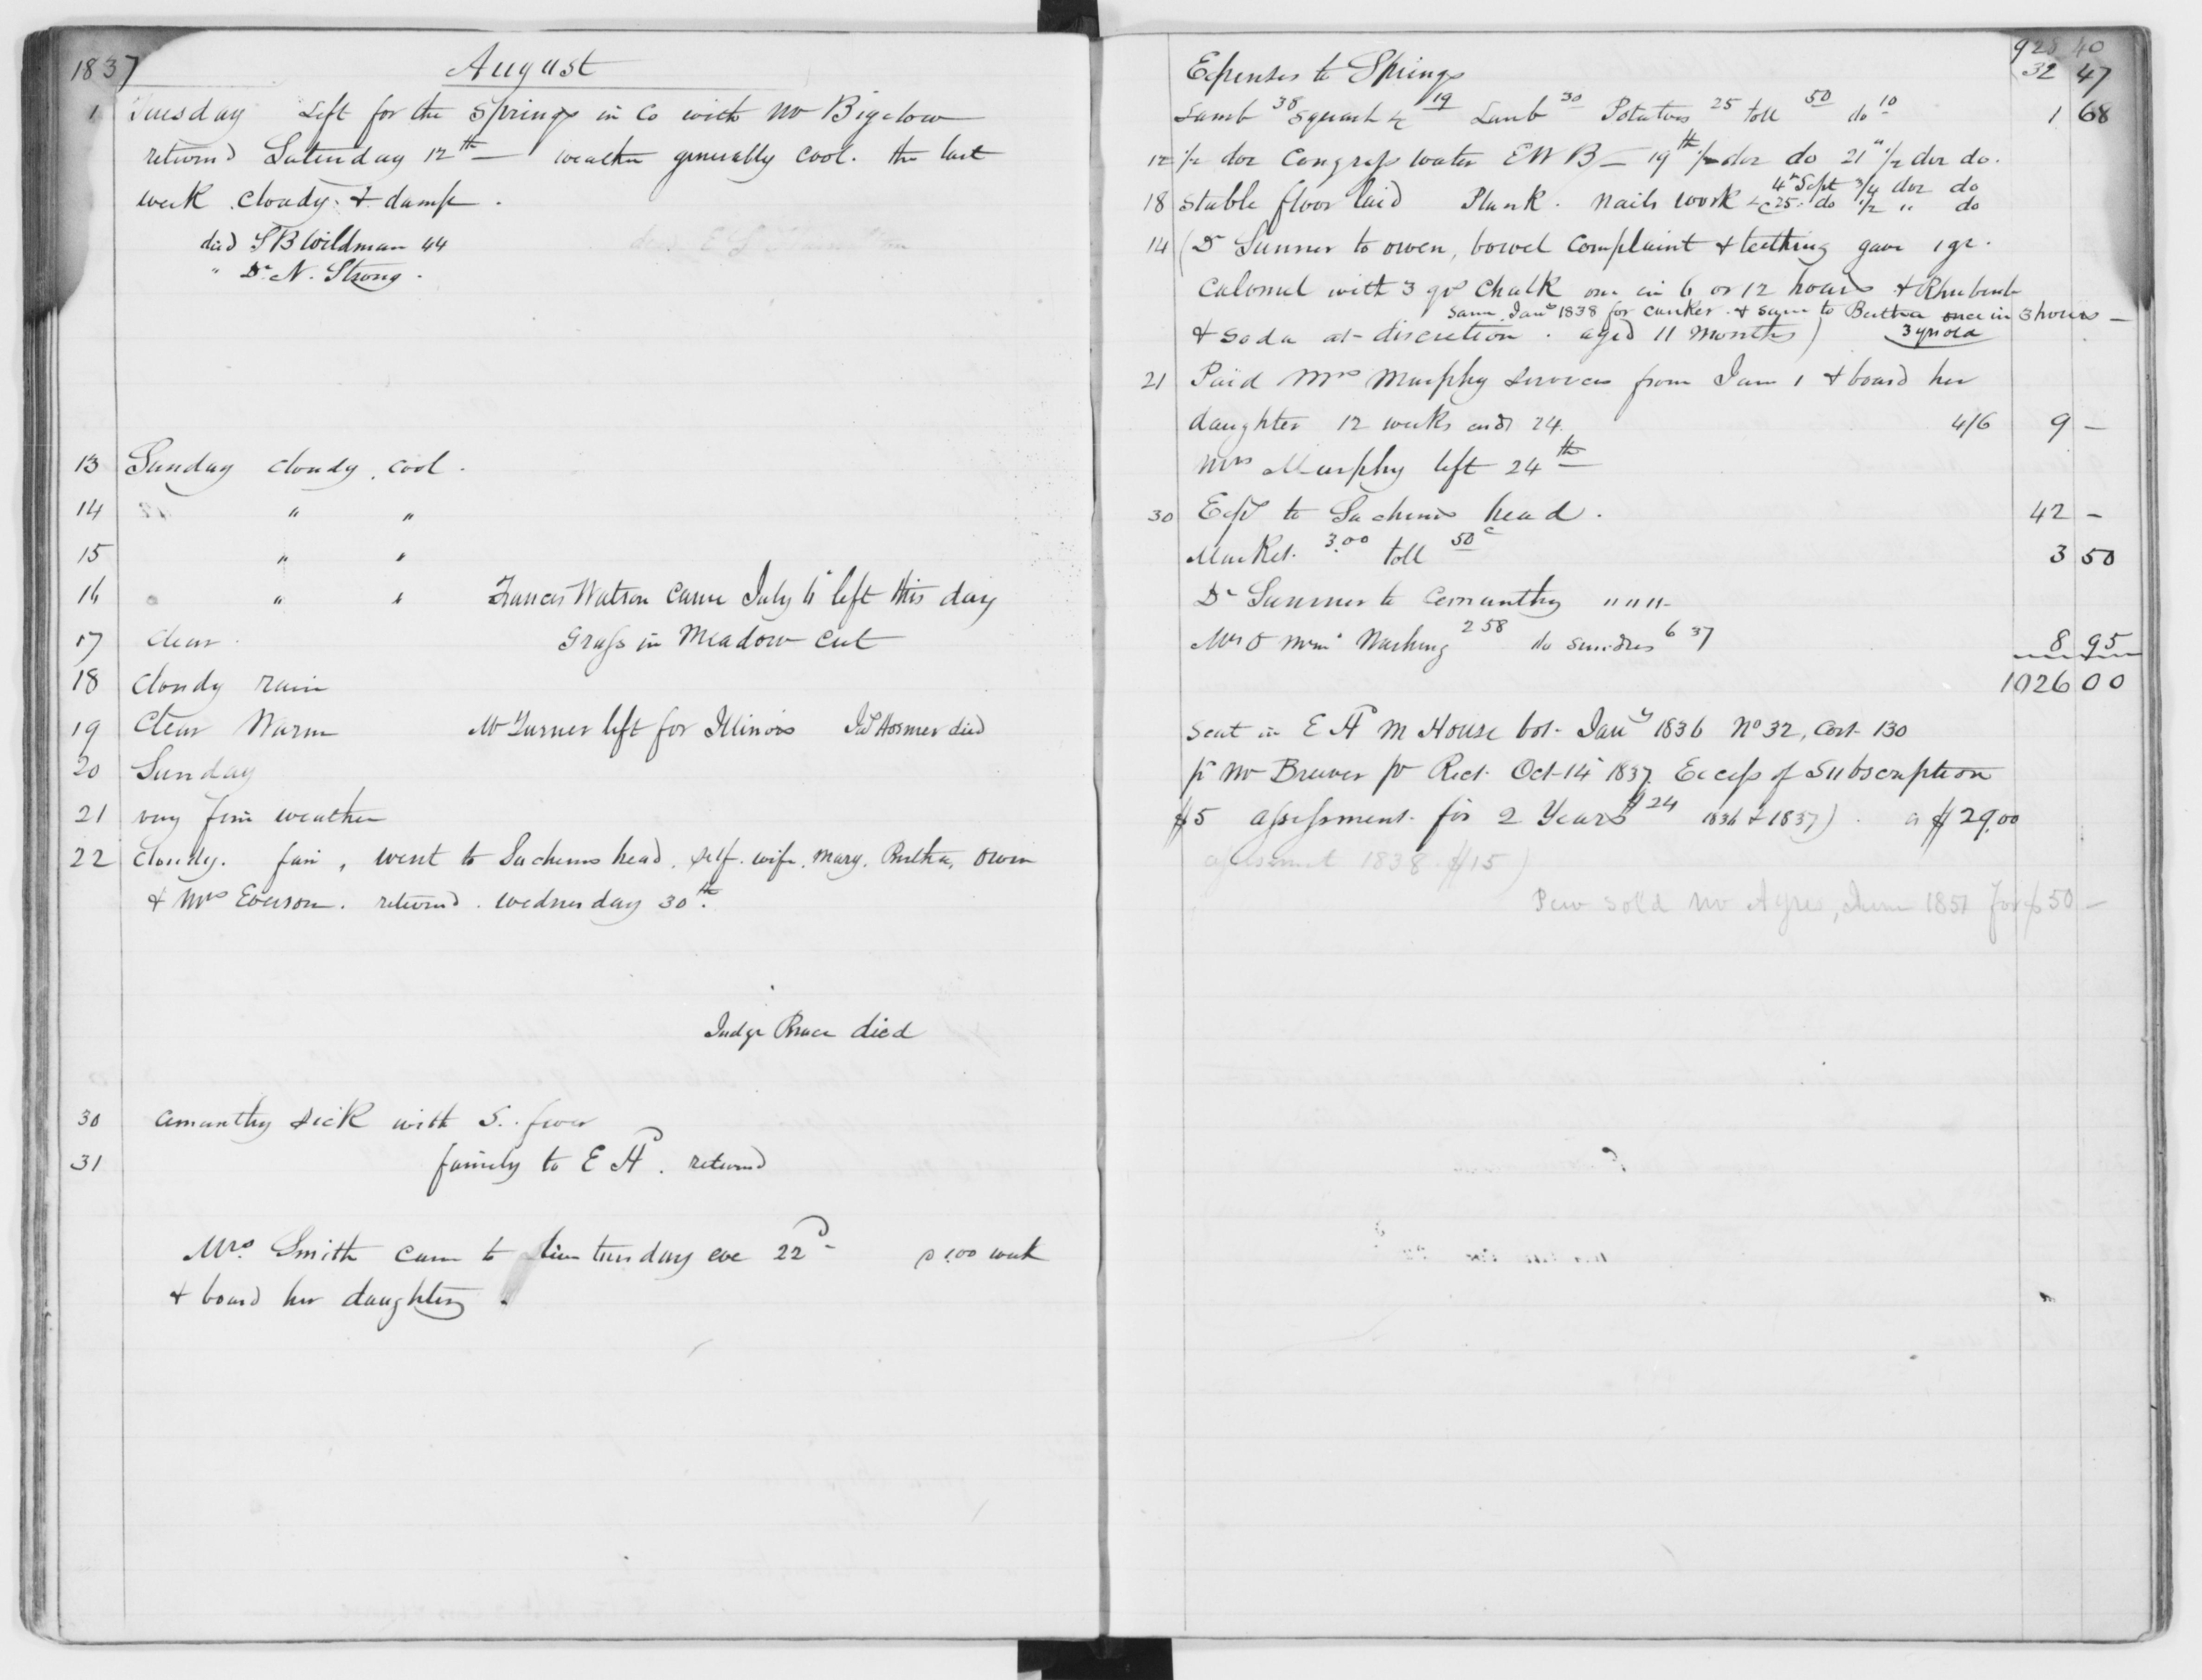 1837 August
1 Tuesday Left for the Springs in Co with Mr Bigelow
returnd Saturday 12th – weather generally cool. the last
week cloudy & damp.
died S B Wildman 44
" Dr N. Strong.
13 Sunday cloudy, cool.
14 " "
15 " "
16 " " Frances Watson came July 6" left this day
17 Clear. Grass in Meadow cut
18 Cloudy rain
19 Clear Warm Mr Turner left for Illinois Jas Hosmer died
20 Sunday
21 very fine weather
22 Cloudy. fair, went to Sachems head. self. wife. Mary. Bertha, Owen
& Mrs Everson. returnd. Wednesday 30th.
Judge Brace died
30 Amanthy sick with S. fever
31 family to E Hd. returnd
Mrs. Smith came to live tuesday eve 22d - week
& board her daughter.
928 40
Expenses to Springs 32 47
Lamb 38 Squash &c 19 Lamb 30 Potatoes 25 toll 50 do 10 1 68
12 1/2 doz Congress water E W B – 19th 1/2 doz do 21" 1/2 doz do.
4th Sept 3/4 doz do
18 Stable floor laid Plank. nails work &c 25. do 1/2 " do
14 (Dr Sumner to Owen, bowel Complaint & teething gave 1 gr.
Calomel with 3 grs Chalk one in 6 or 12 hours & Rhubarb
Same Jany 1838 for canker. & same to Bertha once in 3 hours –
& Soda at discretion. aged 11 months) 3 yrs old
21 Paid Mrs Murphy services from Jan 1 & board her
daughter 12 weeks ends 24. 4/6 9 –
Mrs Murphy left 24th
30 Exps to Sachems head. 42 –
Market. 3.00 toll 50c 3 50
Dr Sumner to Cemanthy """-
Mrs O Washing 2 58 do sundries 6 37 8 95
1026 00
Seat in E Hd M House bot. Jany 1836 No 32, Cost 130
pd Mr Brewer pr Rect. Oct 14" 1837. Excess of Subscription
$5 assessment for 2 Years $24 1836 & 1837). is $29,00
assessmt 1838 $15)
Pew sold Mr Ayres, June 1851 for $50 –